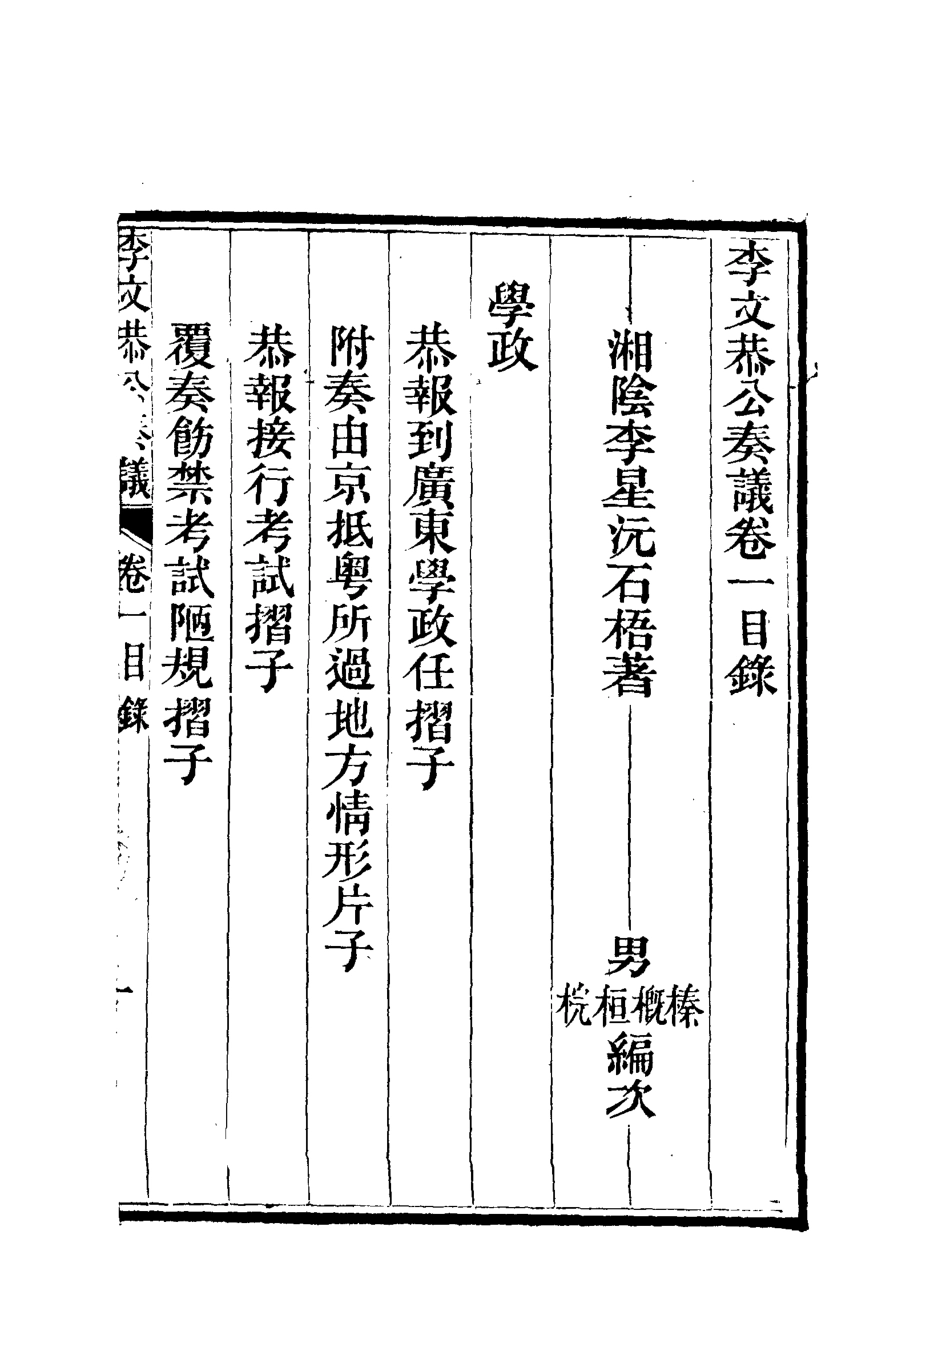 李文恭公奏議卷一目錄
湘陰李星沅石梧著
男
榛概桓梡
編次
學政
恭報到廣東學政任摺子
附奏由京抵粵所過地方情形片子
恭報接行考試摺子
覆奏飭禁考試陋規摺子
李文恭公奏議 卷一目錄 一